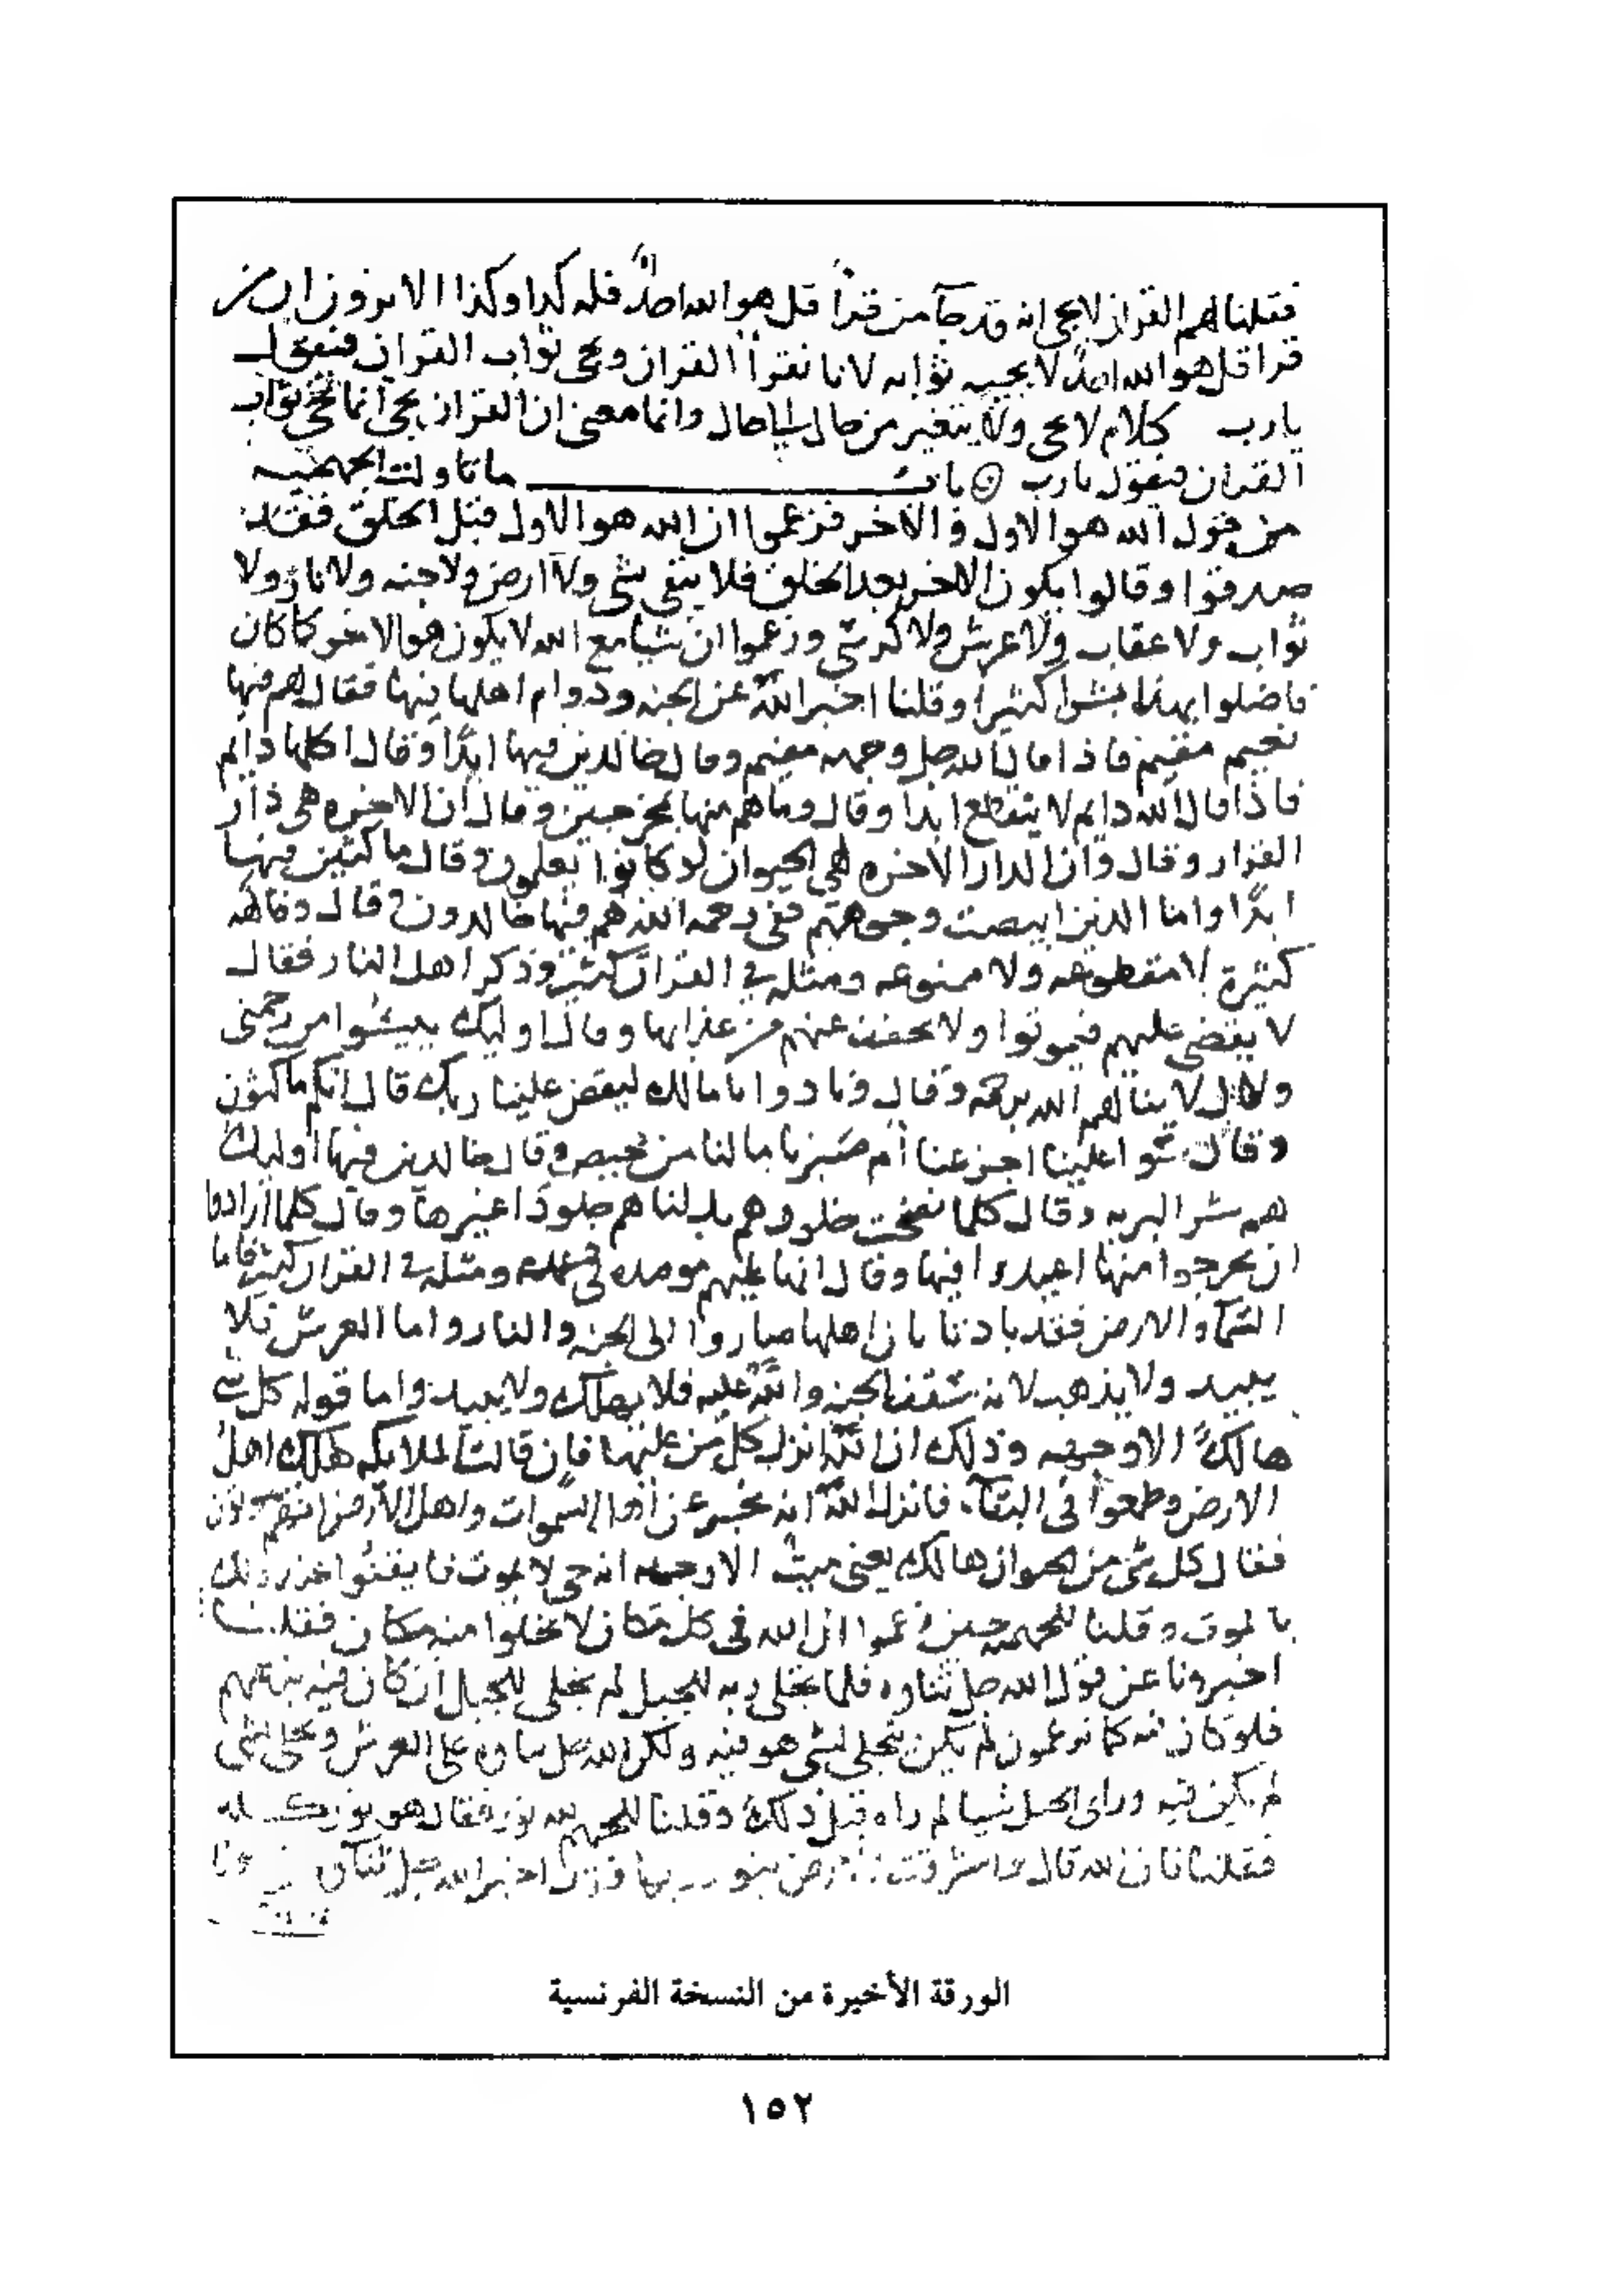 فقلنا لهم القران لا يجى انه قد جآ من قرأ قل هو الله احدٌ فله كذا وكذا الا ترون ان من
قرا قل هو الله احدٌ لا يجيبه ثوابه لانا نقرأ القران ويجى ثواب القران فيقول
يارب كلام لا يجى ولا يتغير من حال الى حال وانما معنى ان القران يجى انما يجى ثواب
القران فيقول يارب باب ما تاولت الجهميه
من قول الله هو الاول والاخر فزعموا ان الله هو الاول قبل الخلق فقد
صدقوا وقالوا يكون الاخر بعد الخلق فلا يبقى شى ولا ارض ولا جنه ولا نار ولا
ثواب ولا عقاب ولا عرش ولا كرسى وزعموا ان شيا مع الله لا يكون هو الاخر كما كان
فاضلوا بهذا بشرا كثيرا وقلنا اخبر الله عن الجنه ودوام اهلها فيها فقال لهم فيها
نعيم مقيم فاذا قال الله جل وجهه مقيم وقال خالدين فيها ابدًا وقال اكلها دايم
فاذا قال الله دايم لا ينقطع ابدا وقال وما هم منها بمخرجين وقال ان الاخره هى دار
القرار وقال وان الدار الاخره لهى الحيوان لو كانوا يعلمون وقال ماكثين فيها
ابدًا واما الذين ابيضت وجوههم ففى رحمه الله هم فيها خالدون وقال وفاكهه
كثيرة لا مقطوعه ولا ممنوعه ومثله فى القران كثير وذكر اهل النار فقال
لا يقضى عليهم فيموتوا ولا يخفف عنهم من عذابها وقال اوليك ييسوا من رحمتى
وقال لا ينالهم الله برحمه وقال ونادوا يا مالك ليقض علينا ربك قال انكم ماكثون
وقال سوا علينا اجزعنا أم صبرنا ما لنا من محيص وقال خالدين فيها اوليك
هم شر البريه وقال كلما نضجت جلودهم بدلناهم جلودا غيرها وقال كلما ارادوا
ان يخرجوا منها اعيدوا فيها وقال انها عليهم موصده فى عمد ومثله فى القران كثير فاما
السمآ والارض فقد بادتا بان اهلها صاروا الى الجنه والنار واما العرش فلا
يبيد ولا يذهب لانه سقف الجنه والله عليه فلا يهلك ولا يبيد واما قوله كل شى
هالكٌ الا وجهه وذلك ان الله انزل كل من عليها فان قالت الملايكه هلك اهل
الارض وطمعوا فى البقآ فانزل الله انه يخبر عن اهل السموات واهل الارض انهم يموتون
فقال كل شى من الحيوان هالك يعنى ميت الا وجهه انه حى لا يموت فايقنوا عند ذلك
بالموت وقلنا للجهميه حين زعموا ان الله فى كل مكان لا يخلوا منه مكان فقلنا
اخبرونا عن قول الله جل ثناوه فلما تجلى ربه للجبل لم تجلى للجبل ان كان فيه بزعمهم
فلو كان فيه كما تزعمون لم يكن يتجلى لشى هو فيه ولكن الله جل ثناوه على العرش وتجلى لشى
لم يكن فيه وراى الجبل شيا لم راه قبل ذلك وقلنا للجهم الله نور فقال هو نور كله
فقلنا فان الله قال واشرقت الارض بنور ربها فقد اخبر الله جل ثنآوه
الورقة الأخيرة من النسخة الفرنسية
١٥٢